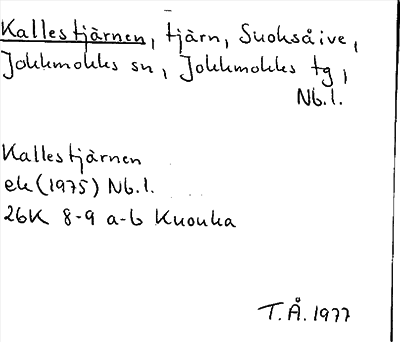 Kallestjärnen, tjärn, Suoksåive,
Jokkmokks sn, Jokkmokks tg,
Nb.l.
Kallestjärnen
ek (1975) Nb.l.
26K 8-9 a-b Kuouka
T.Å. 1977